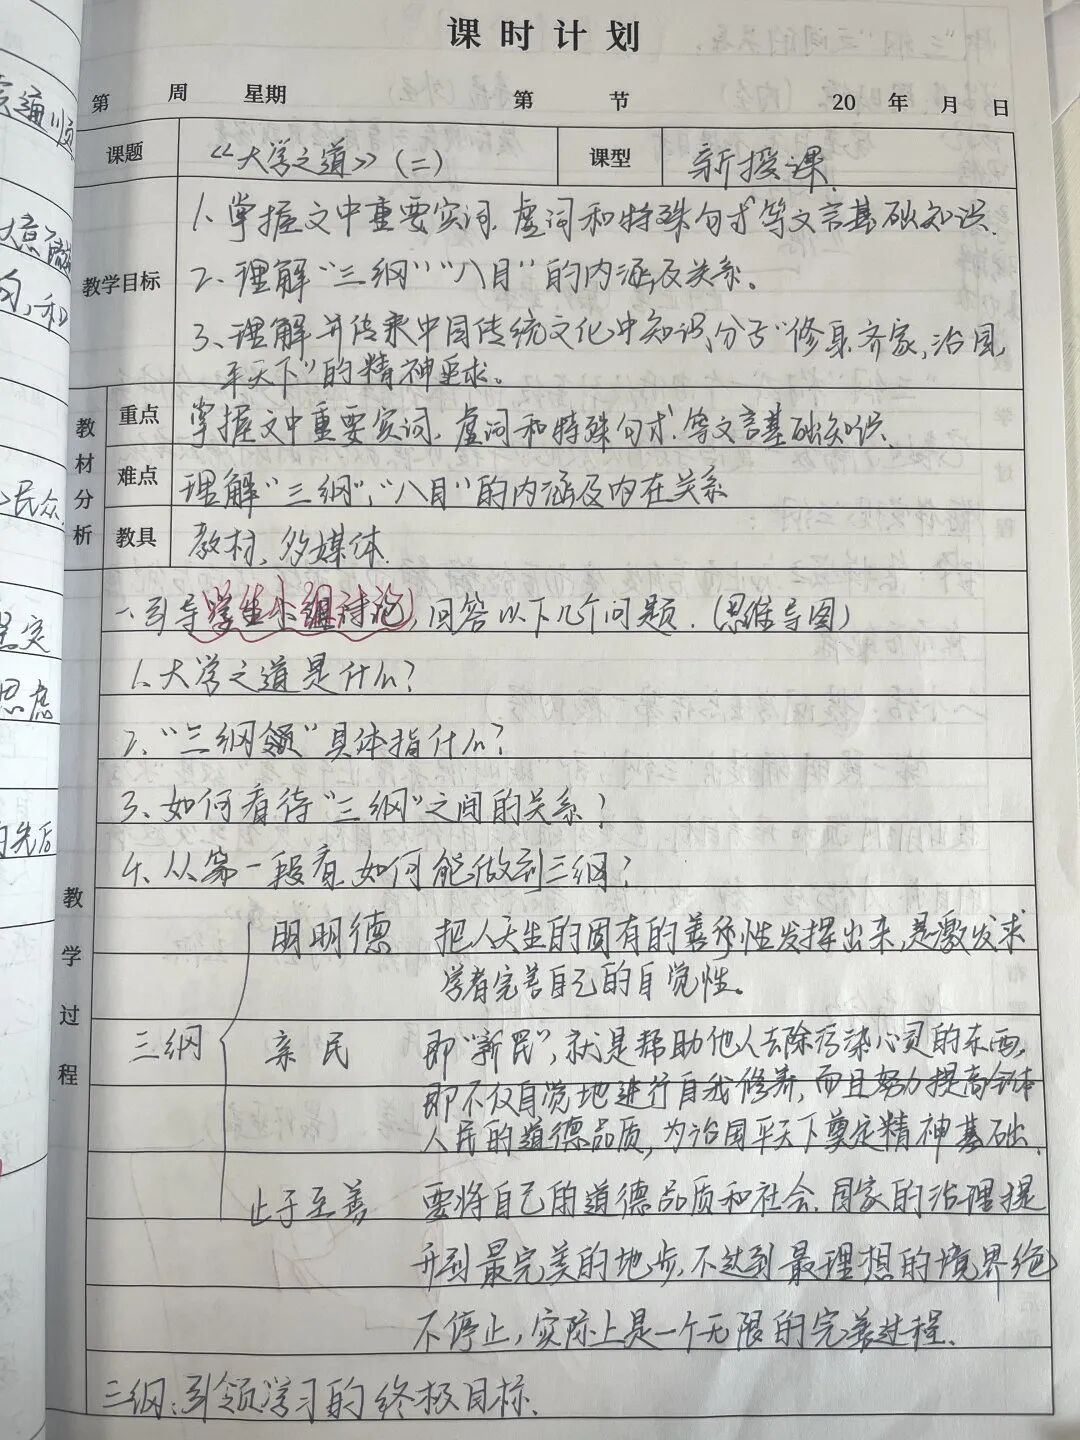 课时计划
第 周 星期 第 节 20 年 月 日
课题 《大学之道》(二) 课型 新授课
教学目标
1、掌握文中重要实词、虚词和特殊句式等文言基础知识.
2、理解“三纲”“八目”的内涵及关系。
3、理解并传承中国传统文化中知识分子“修身、齐家、治国、
平天下”的精神要求。
教材分析
重点 掌握文中重要实词、虚词和特殊句式等文言基础知识.
难点 理解“三纲”、“八目”的内涵及内在关系
教具 教材、多媒体.
教学过程
一.引导学生小组讨论,回答以下几个问题.(思维导图)
1.大学之道是什么?
2、“三纲领”具体指什么?
3、如何看待“三纲”之间的关系?
4、从第一段看,如何能做到三纲?
明明德 把人天生的固有的善 性发挥出来,是激发求
学者完善自己的自觉性。
三纲 亲民 即“新民”,就是帮助他人去除污染心灵的东西,
即不仅自觉地进行自我修养,而且努力提高全体
人民的道德品质,为治国平天下奠定精神基础.
止于至善 要将自己的道德品质和社会、国家的治理提
升到最完美的地步,不达到最理想的境界绝
不停止,实际上是一个无限的完善过程.
三纲:引领学习的终极目标.
会通顺
民众
坚定
思虑
的先后